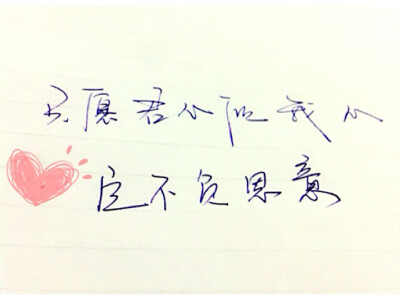 只愿君心似我心
定不负恩意